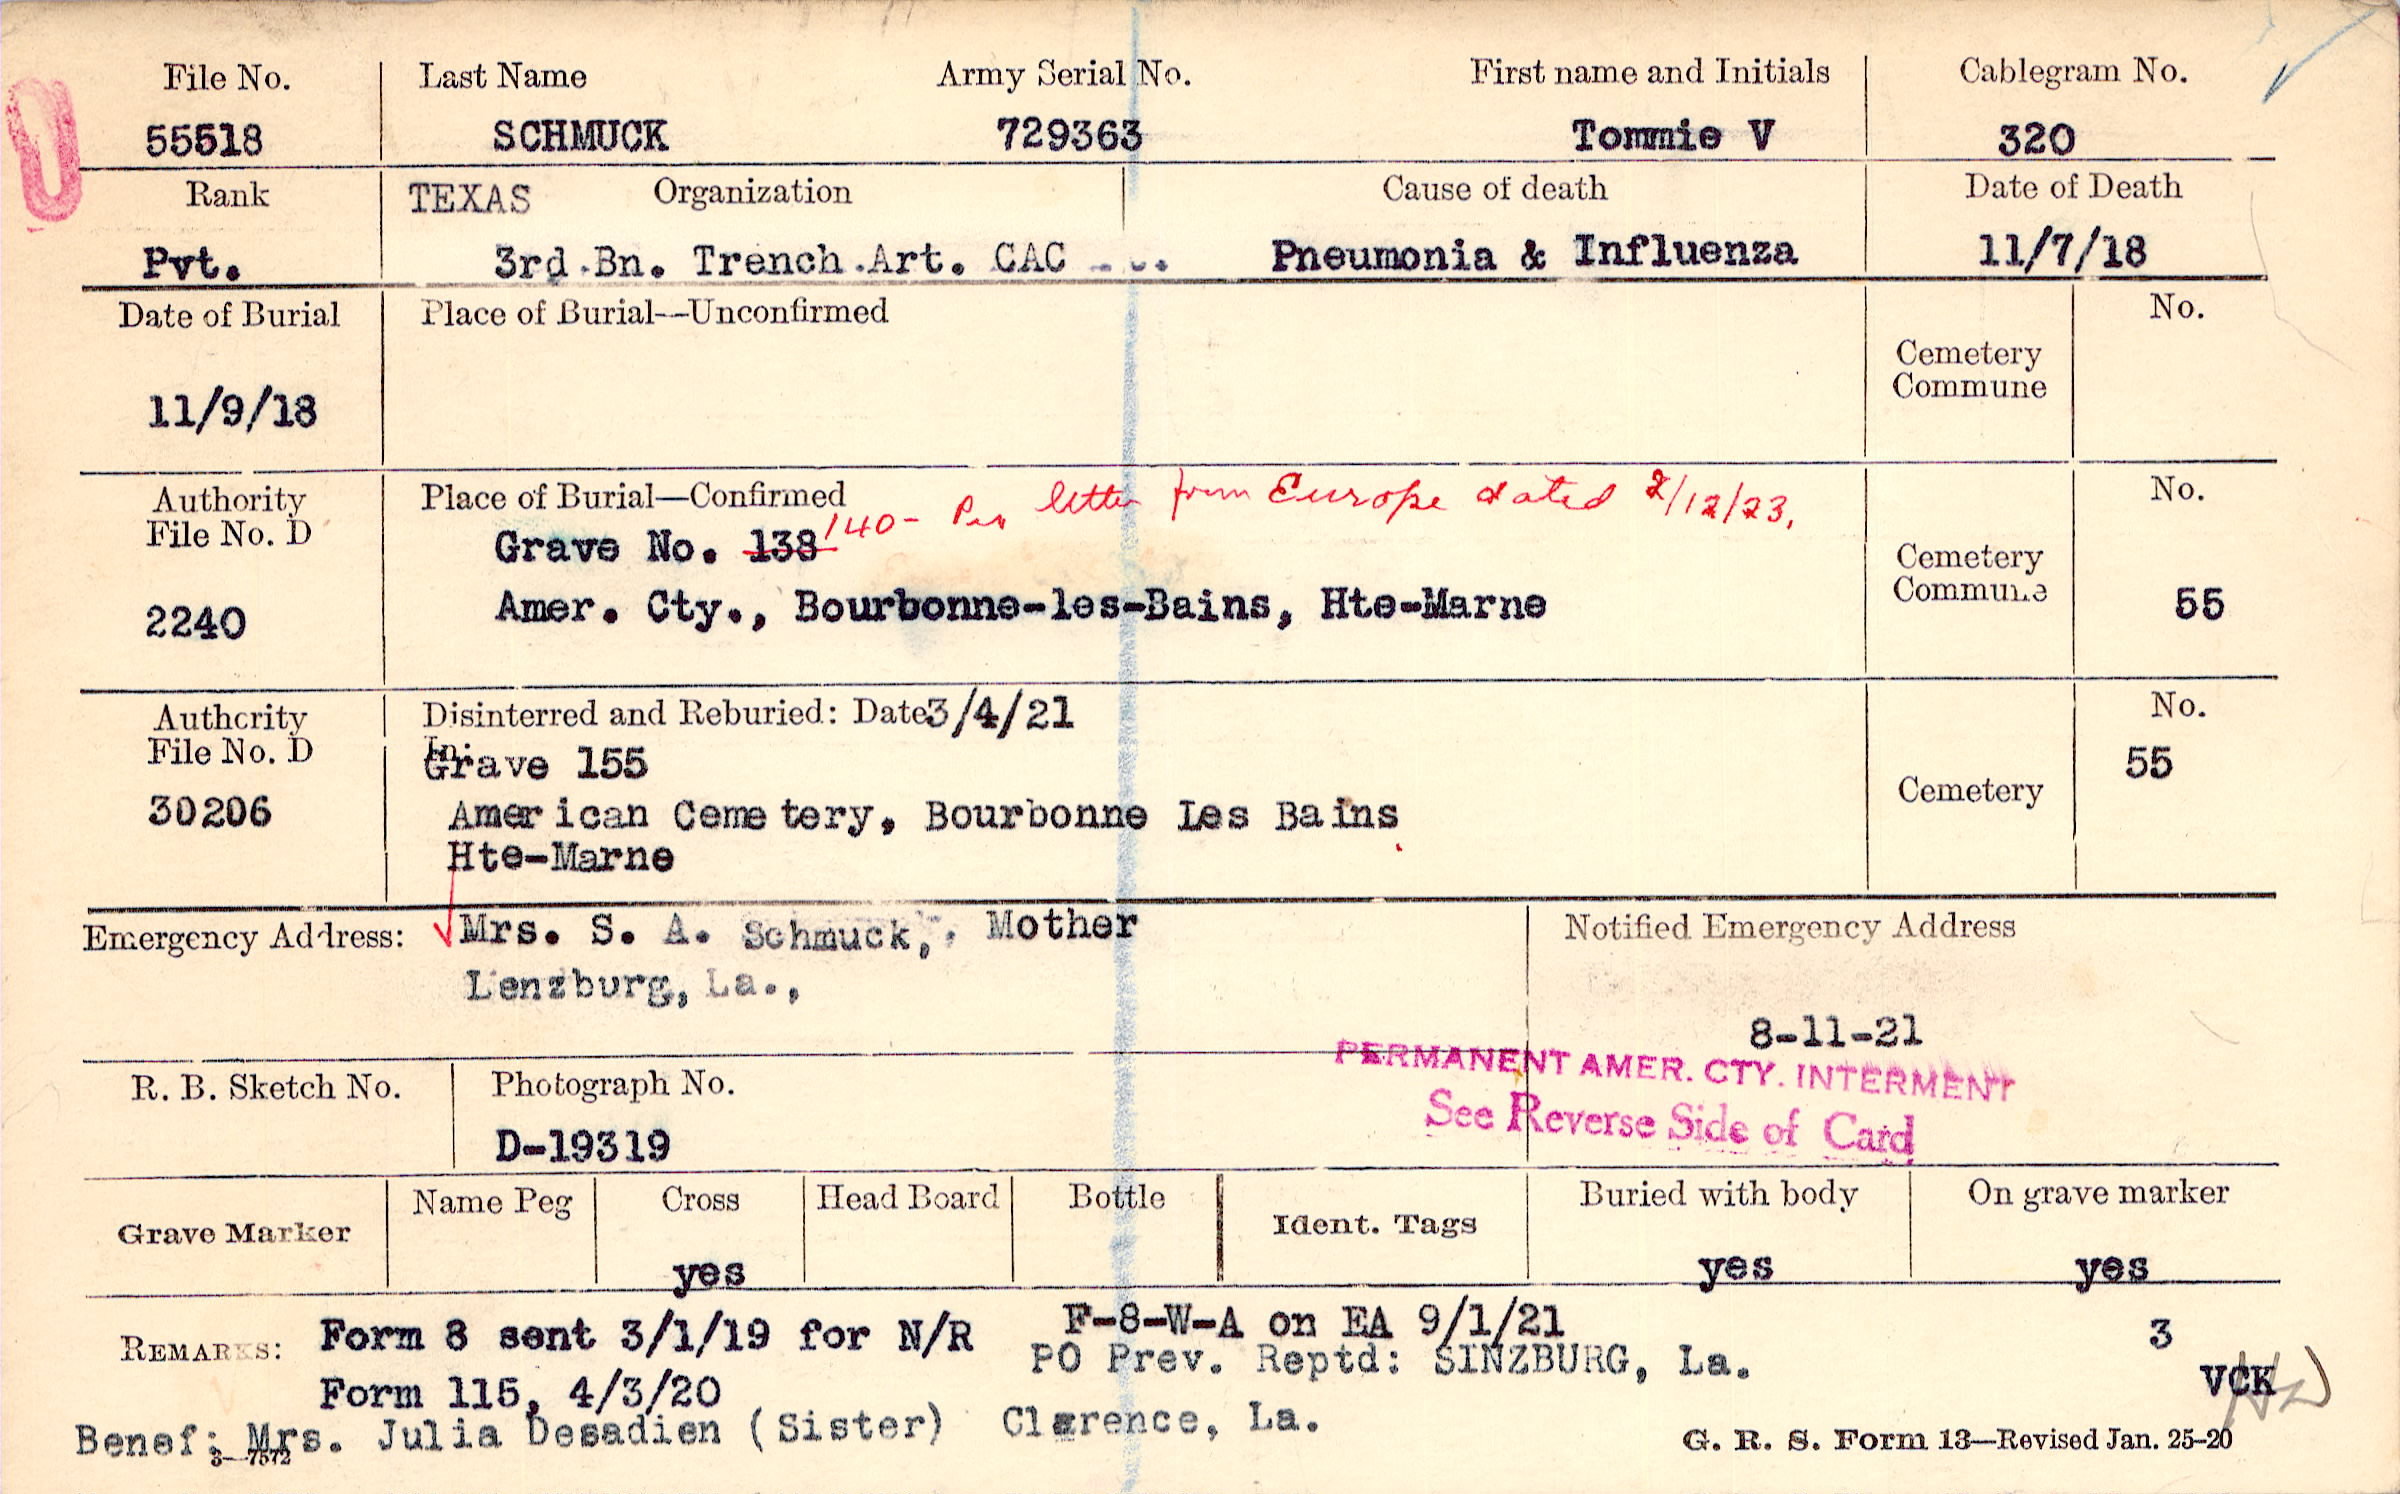 File No. Last Name Army Serial No. First name and Initials Cablegram No.
55518 SCHMUCK 729363 Tommie V 320
Rank TEXAS Organization Cause of death Date of Death
Pvt. 3rd Bn. Trench Art. CAC Pneumonia & Influenza 11/7/18
Date of Burial Place of Burial—Unconfirmed No.
Cemetery
Commune
11/9/18
Authority Place of Burial—Confirmed 140- Per letter from Europe dated 2/12/23. No.
File No. D Grave No. 138 Cemetery
Commune
2240 Amer. Cty., Bourbonne-les-Bains, Hte-Marne 55
Authority Disinterred and Reburied: Date 3/4/21 No.
File No. D In: Grave 155 55
Cemetery
30206 American Cemetery, Bourbonne Les Bains
Hte-Marne
Emergency Address: Mrs. S. A. Schmuck, Mother Notified Emergency Address
Lenzburg, La.,
8-11-21
PERMANENT AMER. CTY. INTERMENT
R. B. Sketch No. Photograph No. See Reverse Side of Card
D-19319
Grave Marker Name Peg Cross Head Board Bottle Ident. Tags Buried with body On grave marker
yes yes yes
REMARKS: Form 8 sent 3/1/19 for N/R F-8-W-A on EA 9/1/21 3
PO Prev. Reptd: SINZBURG, La.
Form 115, 4/3/20 VCK
Benef: Mrs. Julia Desadien (Sister) Clarence, La.
3—7572 G. R. S. Form 13—Revised Jan. 25-20